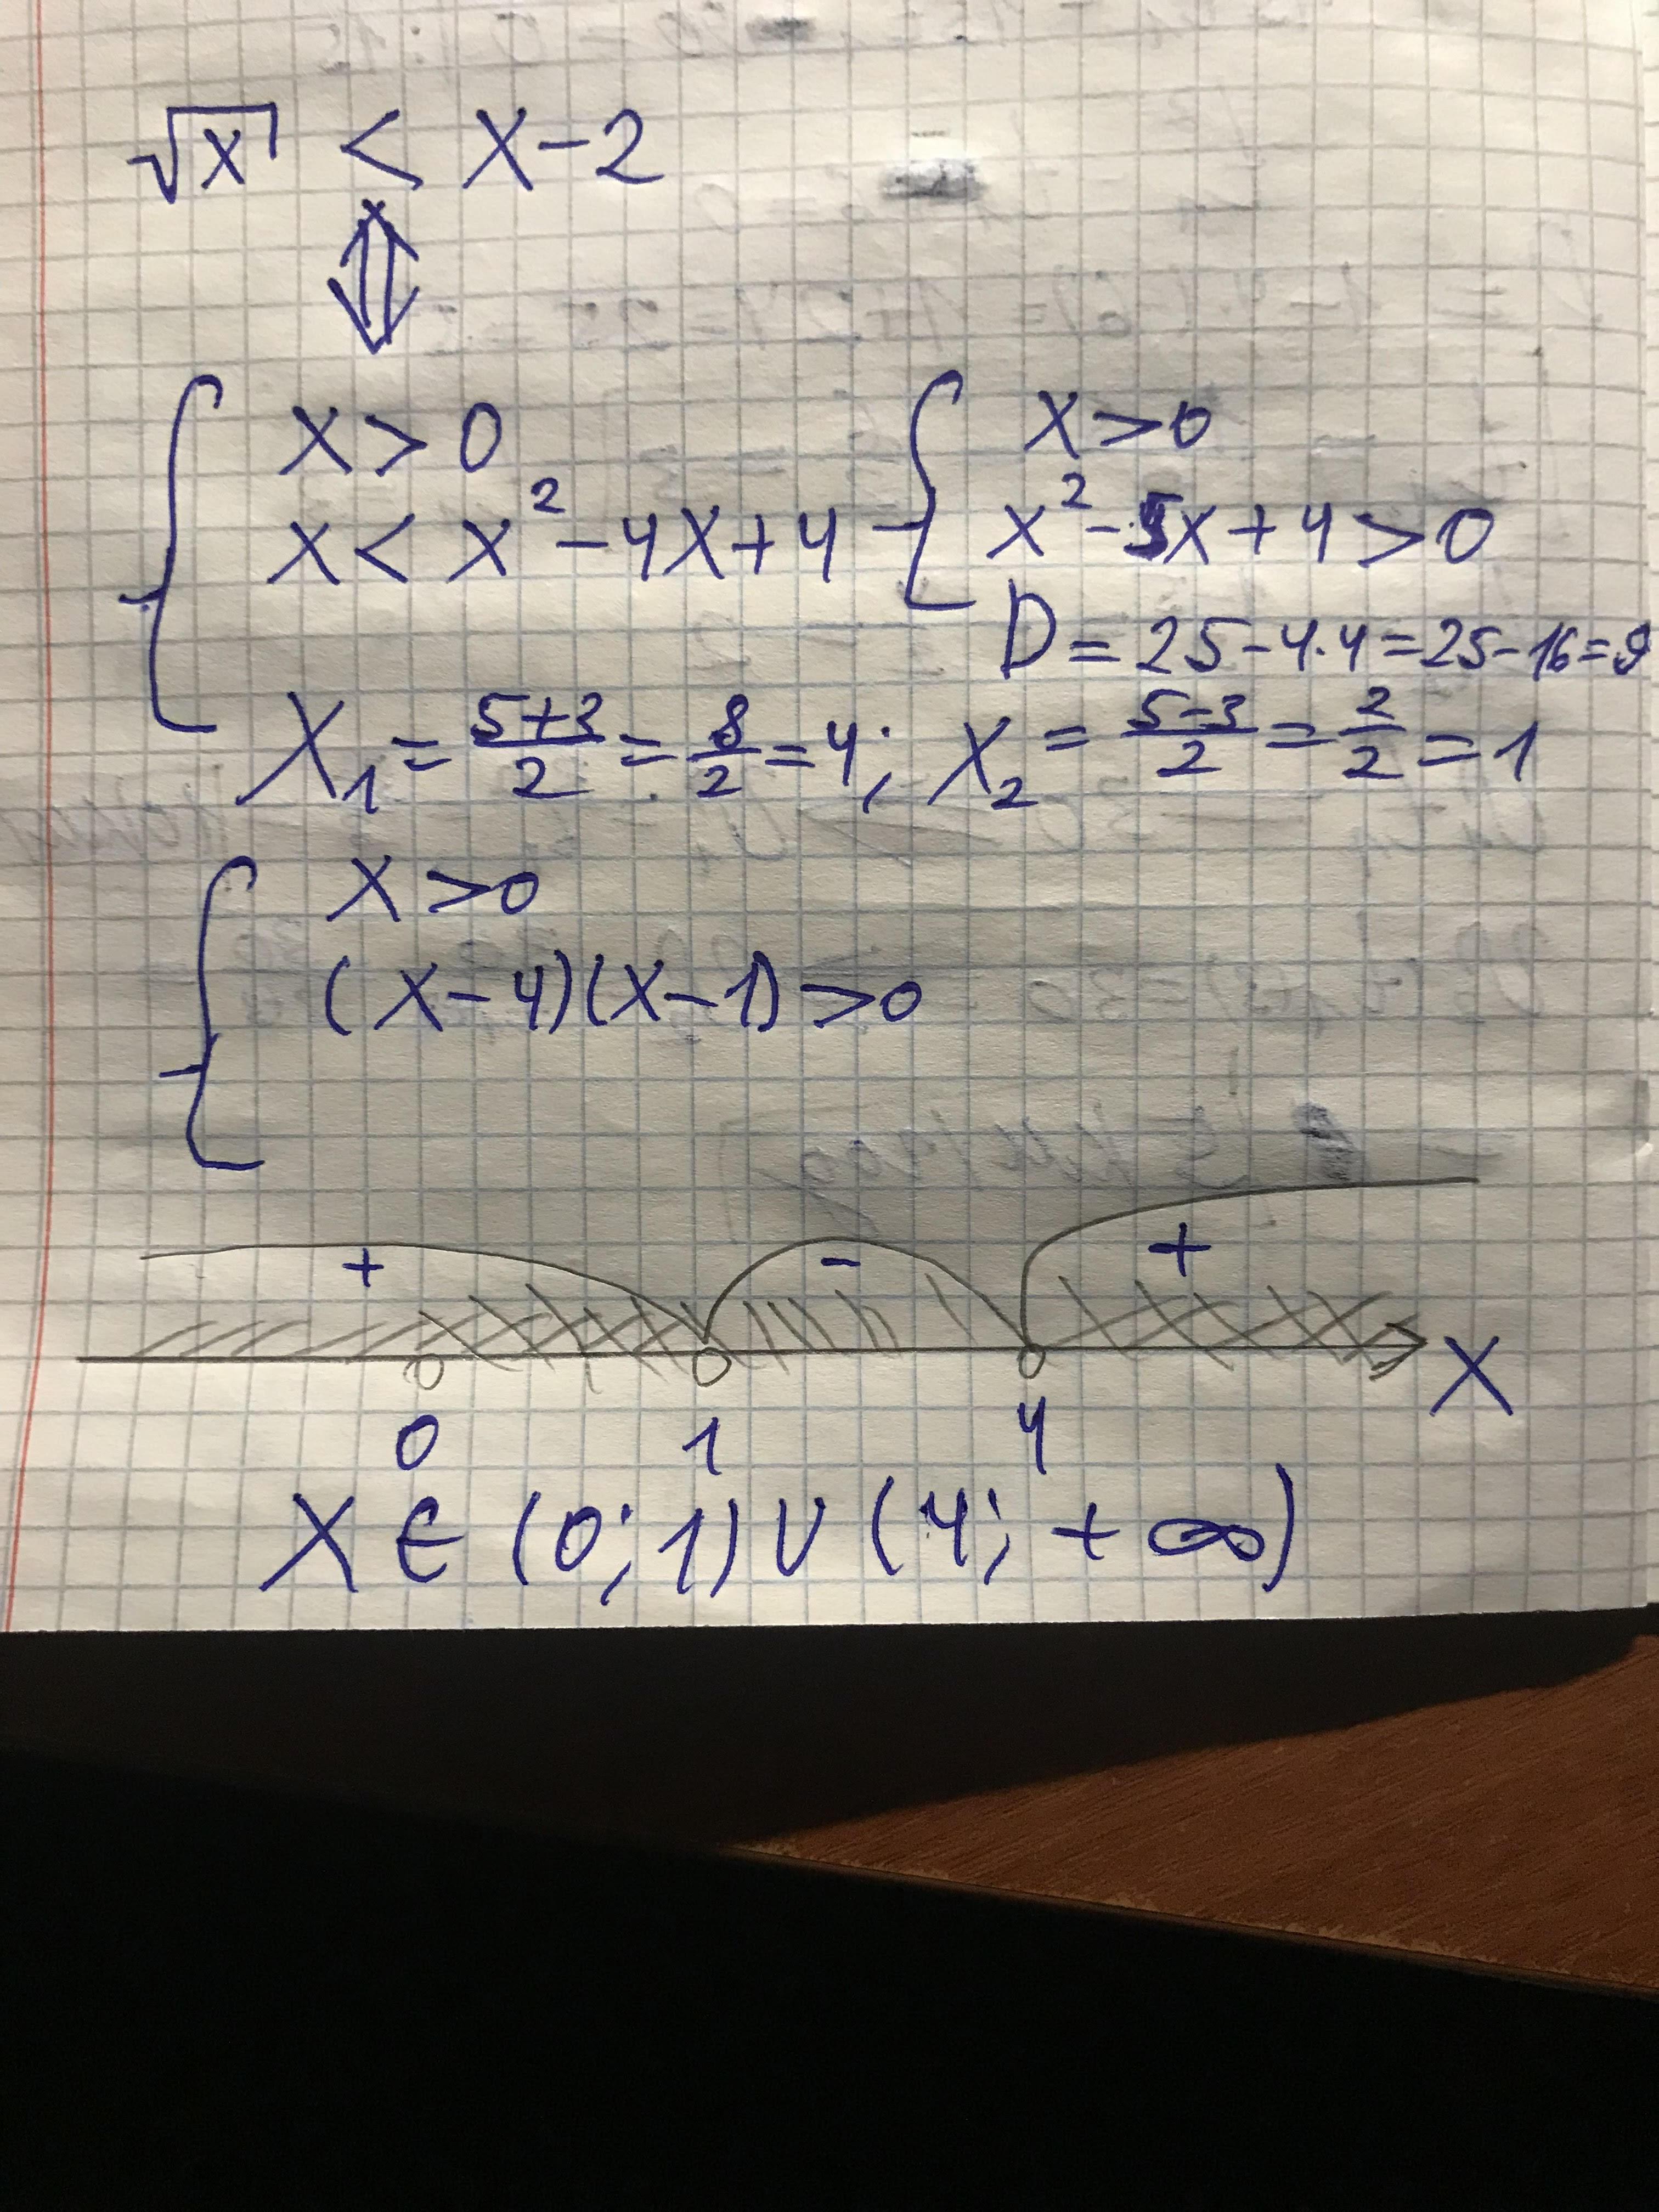 √x < x-2
⇕
{ x>0
x < x²-4x+4
{ x>0
x²-5x+4>0
D=25-4·4=25-16=9
x₁=(5+3)/2=8/2=4; x₂=(5-3)/2=2/2=1
{ x>0
(x-4)(x-1)>0
+ - +
0 1 4 x
x∈(0;1)∪(4;+∞)